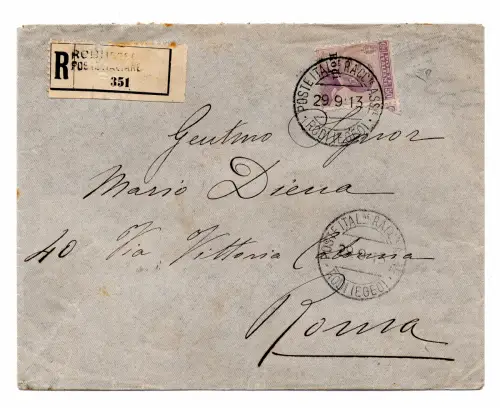 R
RODI (EGEO)
POSTE ITALIANE
351
POSTE ITALNE RACCM ASSTE
29.9.13
(RODI (EGEO)
Gentmo Signor
Mario Diena
40 Via Vittoria Colonna
Roma
POSTE ITALNE
29.9
RODI (EGEO)